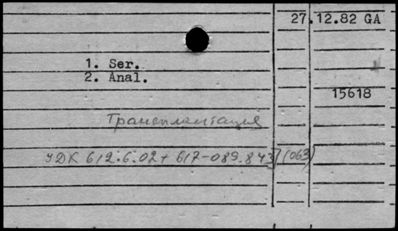 27.12.82 GA
1. Ser.
2. Anal.
15618
Трансплантация
УДК 612.6.02 + 617-089.843](063)